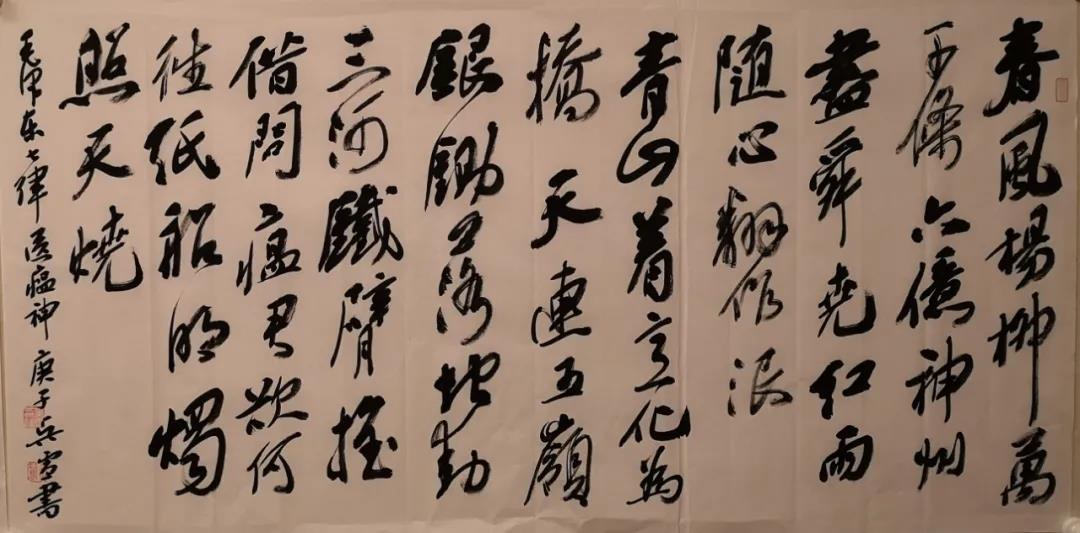 春風楊柳萬
千條六億神州
盡舜堯紅雨
随心翻作浪
青山着意化為
橋天連五嶺
銀鋤落地動
三河鐵臂摇
借問瘟君欲何
往紙船明燭
照天燒
毛澤東七律送瘟神庚子吳雪書